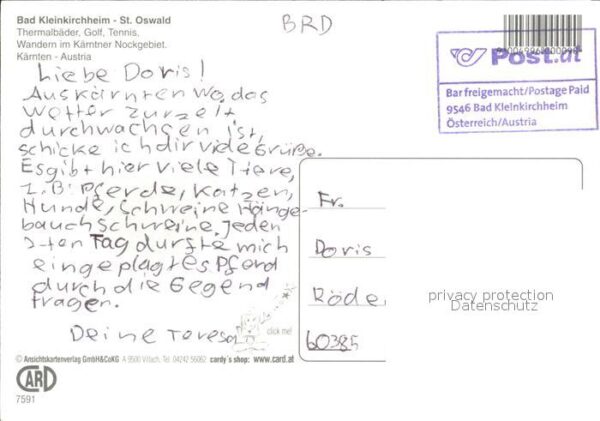 Bad Kleinkirchheim - St. Oswald
Thermalbäder, Golf, Tennis,
Wandern im Kärntner Nockgebiet.
Kärnten - Austria
BRD
Post.at
Bar freigemacht/Postage Paid
9546 Bad Kleinkirchheim
Österreich/Austria
Liebe Doris!
Aus Kärnten wo das
Wetter zurzeit
durchwachsen ist,
schicke ich dir viele Grüße.
Es gibt hier viele Tiere,
z.B. Pferde, Katzen,
Hunde, Schweine Hänge-
bauchschweine. Jeden
2-ten Tag durfte mich
ein geplagtes Pferd
durch die Gegend
tragen.
Deine Teresa
click me!
Fr.
Doris
Röde
60385
privacy protection
Datenschutz
© Ansichtskartenverlag GmbH&CoKG A 9500 Villach, Tel. 04242 56062 cardy's shop: www.card.at
CARD
7591